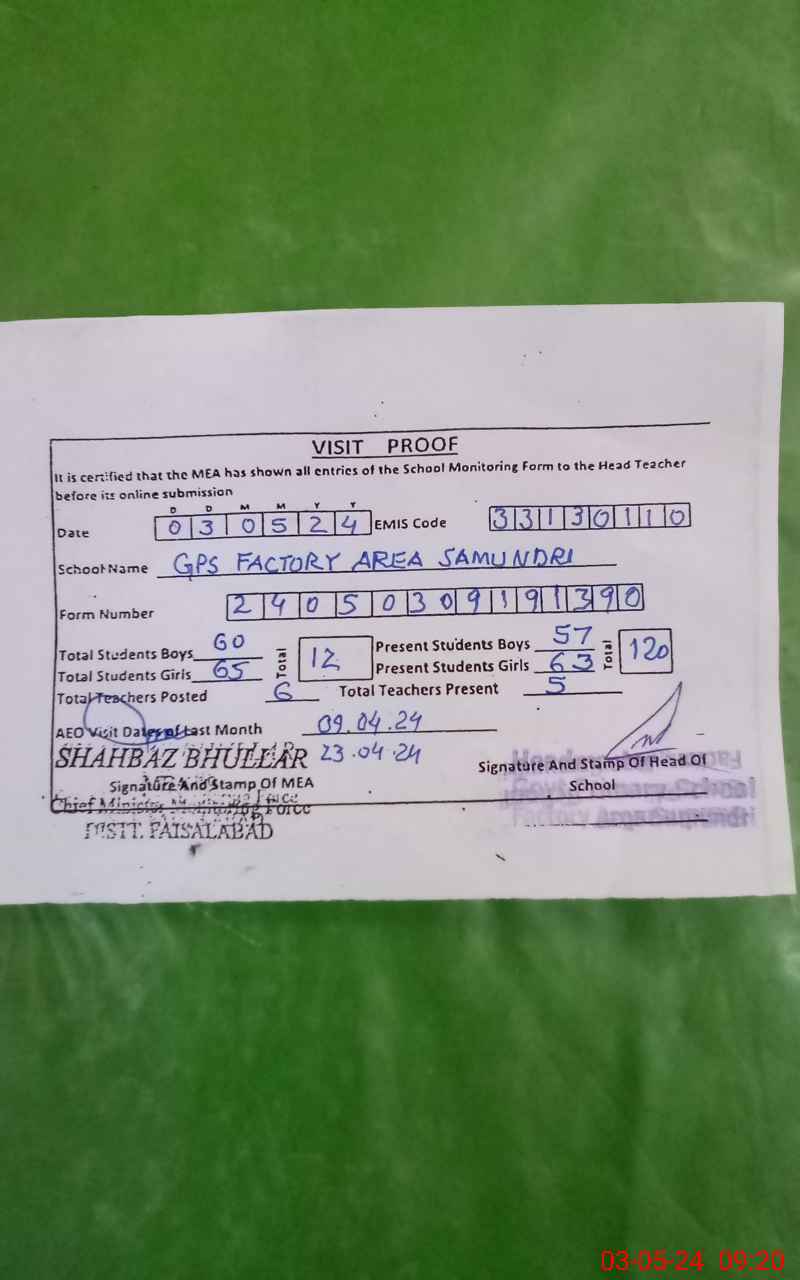 VISIT PROOF
It is certified that the MEA has shown all entries of the School Monitoring Form to the Head Teacher
before its online submission
D D M M Y Y
Date 030524 EMIS Code 33130110
School Name GPS FACTORY AREA SAMUNDRI
Form Number 24050309191390
Total Students Boys 60 Total 12 Present Students Boys 57 Total 120
Total Students Girls 65 Present Students Girls 63
Total Teachers Posted 6 Total Teachers Present 5
AEO Visit Dates of Last Month 09.04.24
SHAHBAZ BHULLAR 23.04.24
Signature And Stamp Of MEA Signature And Stamp Of Head Of
School
Chief Minister Monitoring Force
DISTT. FAISALABAD
Factory Area Samundri
03-05-24 09:20